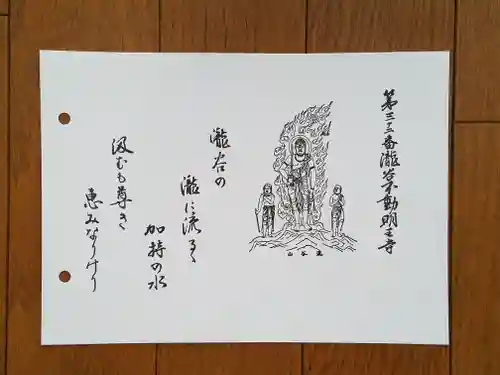 第三十三番瀧谷不動明王寺
山谷瀧
瀧谷の
瀧に流るゝ
加持の水
汲むも尊き
恵みなりけり